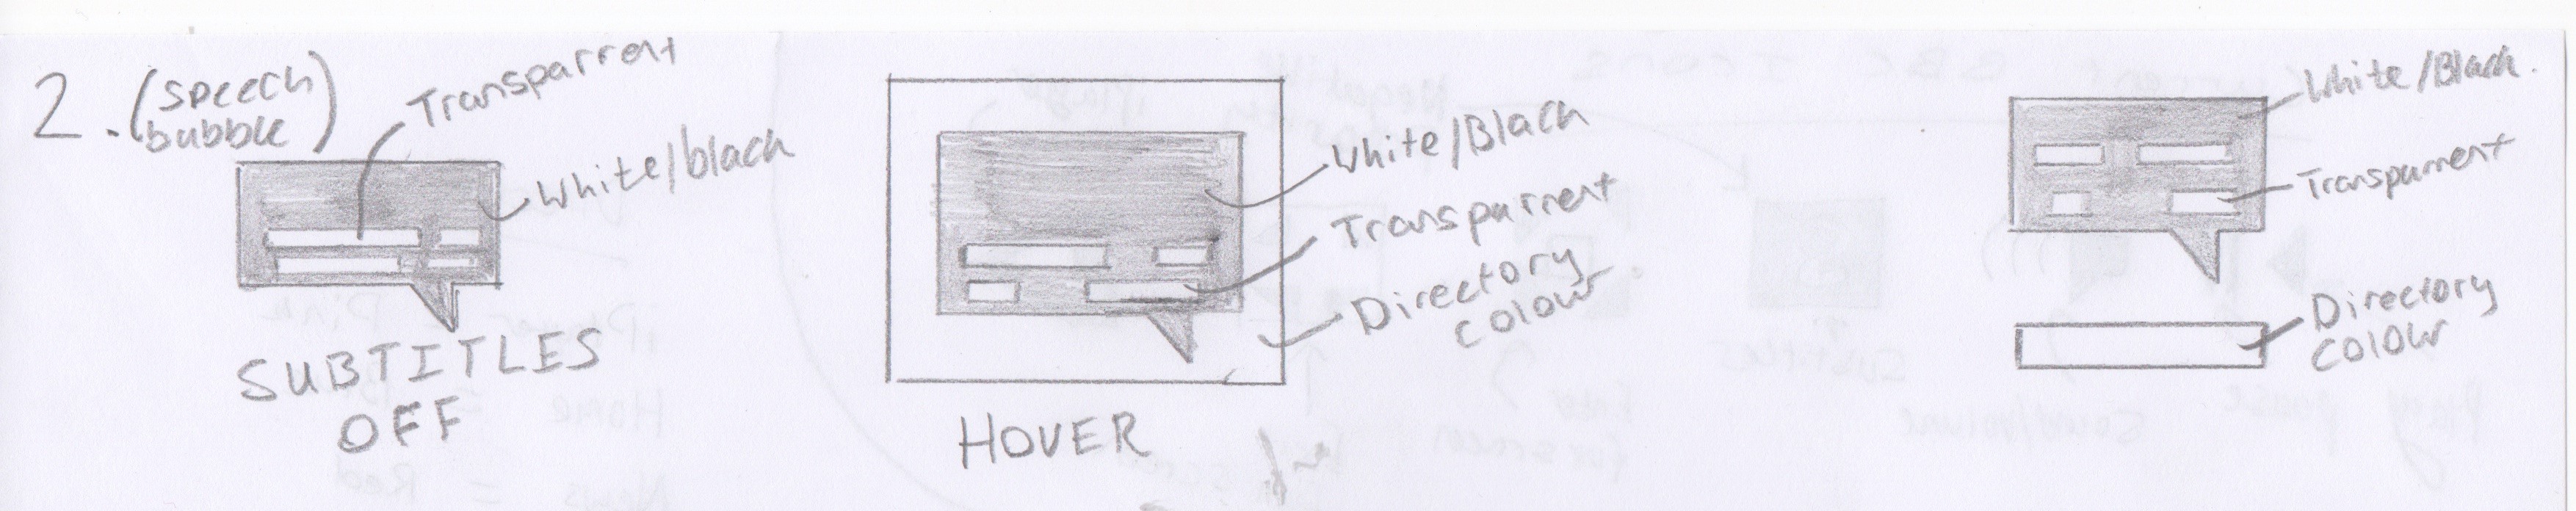 2. (speech
bubble)
Transparrent
White/black
SUBTITLES
OFF
White/Black
Transparrent
Directory
colour
HOVER
White/Black.
Transparrent
Directory
colour